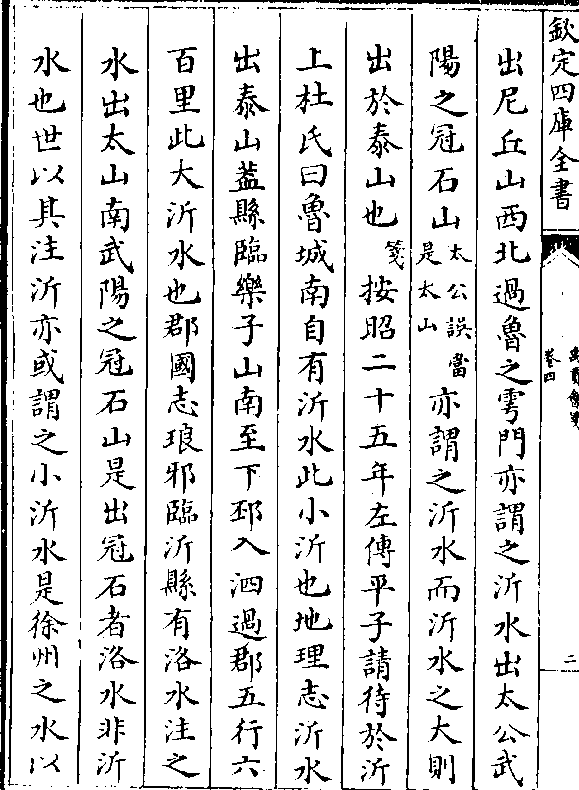 欽定四庫全書
卷四
二
出尼丘山西北過魯之雩門亦謂之沂水出太公武
陽之冠石山太公誤當是太山亦謂之沂水而沂水之大則
出於泰山也箋按昭二十五年左傳平子請待於沂
上杜氏曰魯城南自有沂水此小沂也地理志沂水
出泰山蓋縣臨樂子山南至下邳入泗過郡五行六
百里此大沂水也郡國志琅邪臨沂縣有洛水注之
水出太山南武陽之冠石山是出冠石者洛水非沂
水也世以其注沂亦或謂之小沂水是徐州之水以